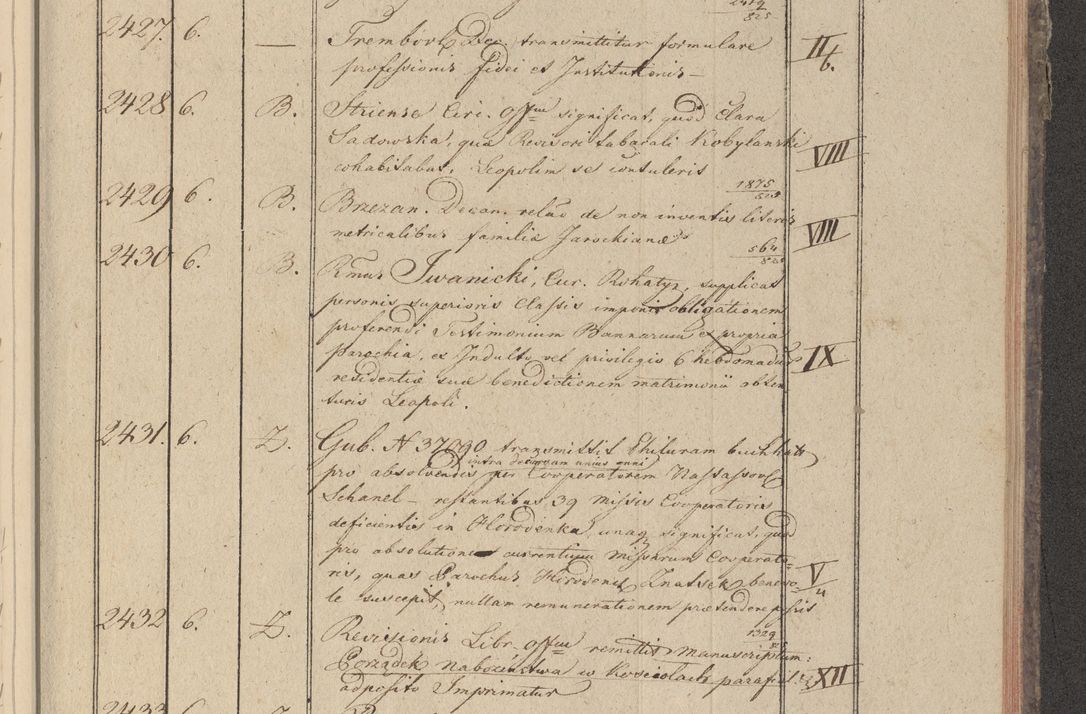 2419
825
2427. 6. — Trembovl. Dec. transmittitur formulare II
professionis fidei et Institutionis — b.
2428 6. B. Striense Circ. Offm significat, quod Clara
Sadowska, quae Revisori tabacali Kobylanski VIII
cohabitabat, Leopolim se contulerit
1875
2429 6. B. Brzezan. Decan. relato de non inventis literis
metricalibus familiae Jarochianae VIII
564
2430 6. B. Rmus Iwanicki, Cur. Rohatyn, supplicat
personis superioris Classis imponi obligationem
proferendi Testimonium Bannorum ex propria
Parochia, ex Indulto vel privilegio 6 hebdomadum IX
residentiae suae benedictionem matrimonii obten
turis Leopoli.
2431. 6. Z. Gub. N 37090 transmittit
intra decursum unius anni
pro absolvendis per Cooperatorem Nastassov
Schanel — restantibus 39 Missis Cooperatoris
deficientis in Horodenka, unaq significat, quod
pro absolutione currentium Missarum Cooperato-
ris, quas Parochus Horodenes. Znatsek benevo V
le suscepit, nullam remunerationem praetendere possit 4
2432 6. Z. Revisionis Libr. Offm remittit Manuscriptum: 1329
Porządek nabożeństwa w Kosciołach parafial. XII
adposito Imprimatur
2433 6. Z.